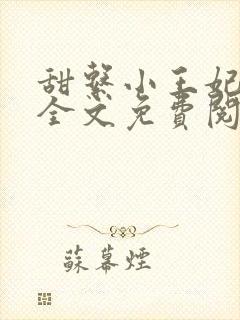 甜繫小王妃
全文免費閱
蘇幕煙